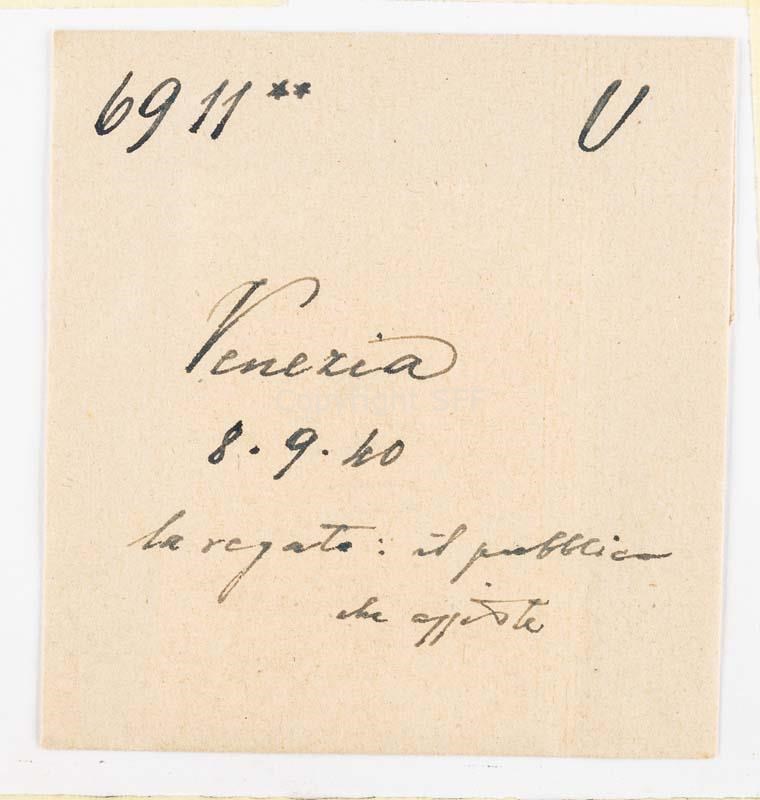 6911** U
Venezia
8.9.40
la regata: il pubblico
che assiste